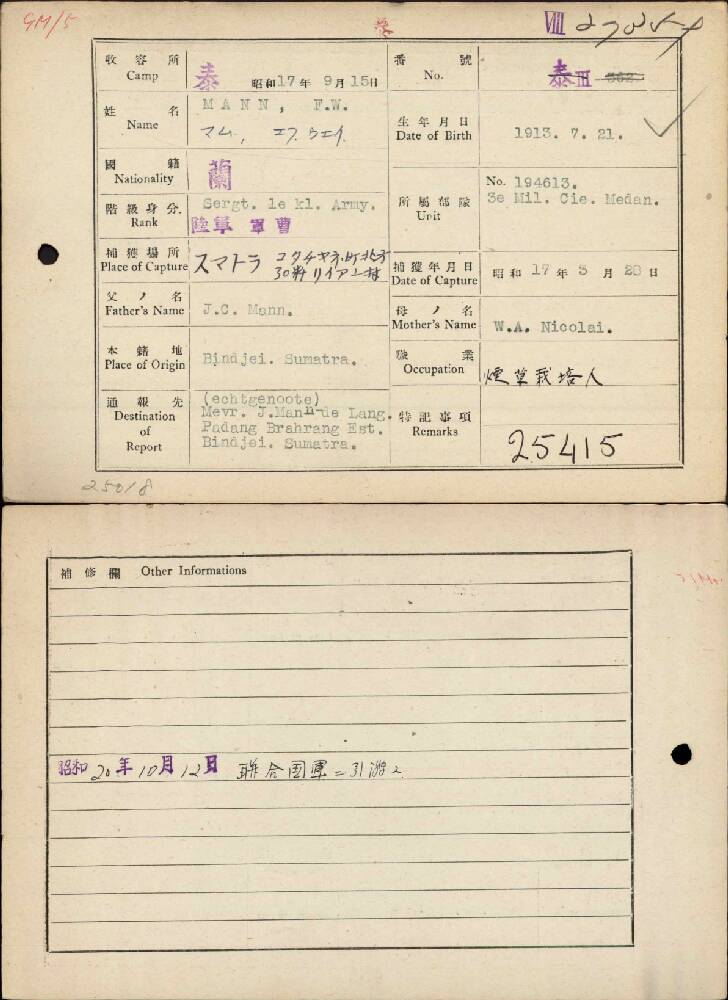 GM/5
VIII
收容所 泰 昭和17年 9月15日
Camp
番號 泰III 362
No.
姓名 MANN, F.W.
Name マム, エフ.ウエイ.
生年月日 1913. 7. 21.
Date of Birth
國籍 蘭
Nationality
階級身分 Sergt. le kl. Army.
Rank 陸軍 軍曹
所屬部隊 No. 194613.
Unit 3e Mil. Cie. Medan.
捕獲場所 スマトラ
Place of Capture
捕獲年月日 昭和17年3月28日
Date of Capture
父ノ名 J.C. Mann.
Father's Name
母ノ名 W.A. Nicolai.
Mother's Name
本籍地 Bindjei. Sumatra.
Place of Origin
職業 煙草栽培人
Occupation
通報先 (echtgenoote)
Destination Mevr. J.Mann-de Lang.
of Padang Brahrang Est.
Report Bindjei. Sumatra.
特記事項 25415
Remarks
25018
補修欄 Other Informations
昭和20年10月12日 聯合国軍ニ引渡ス